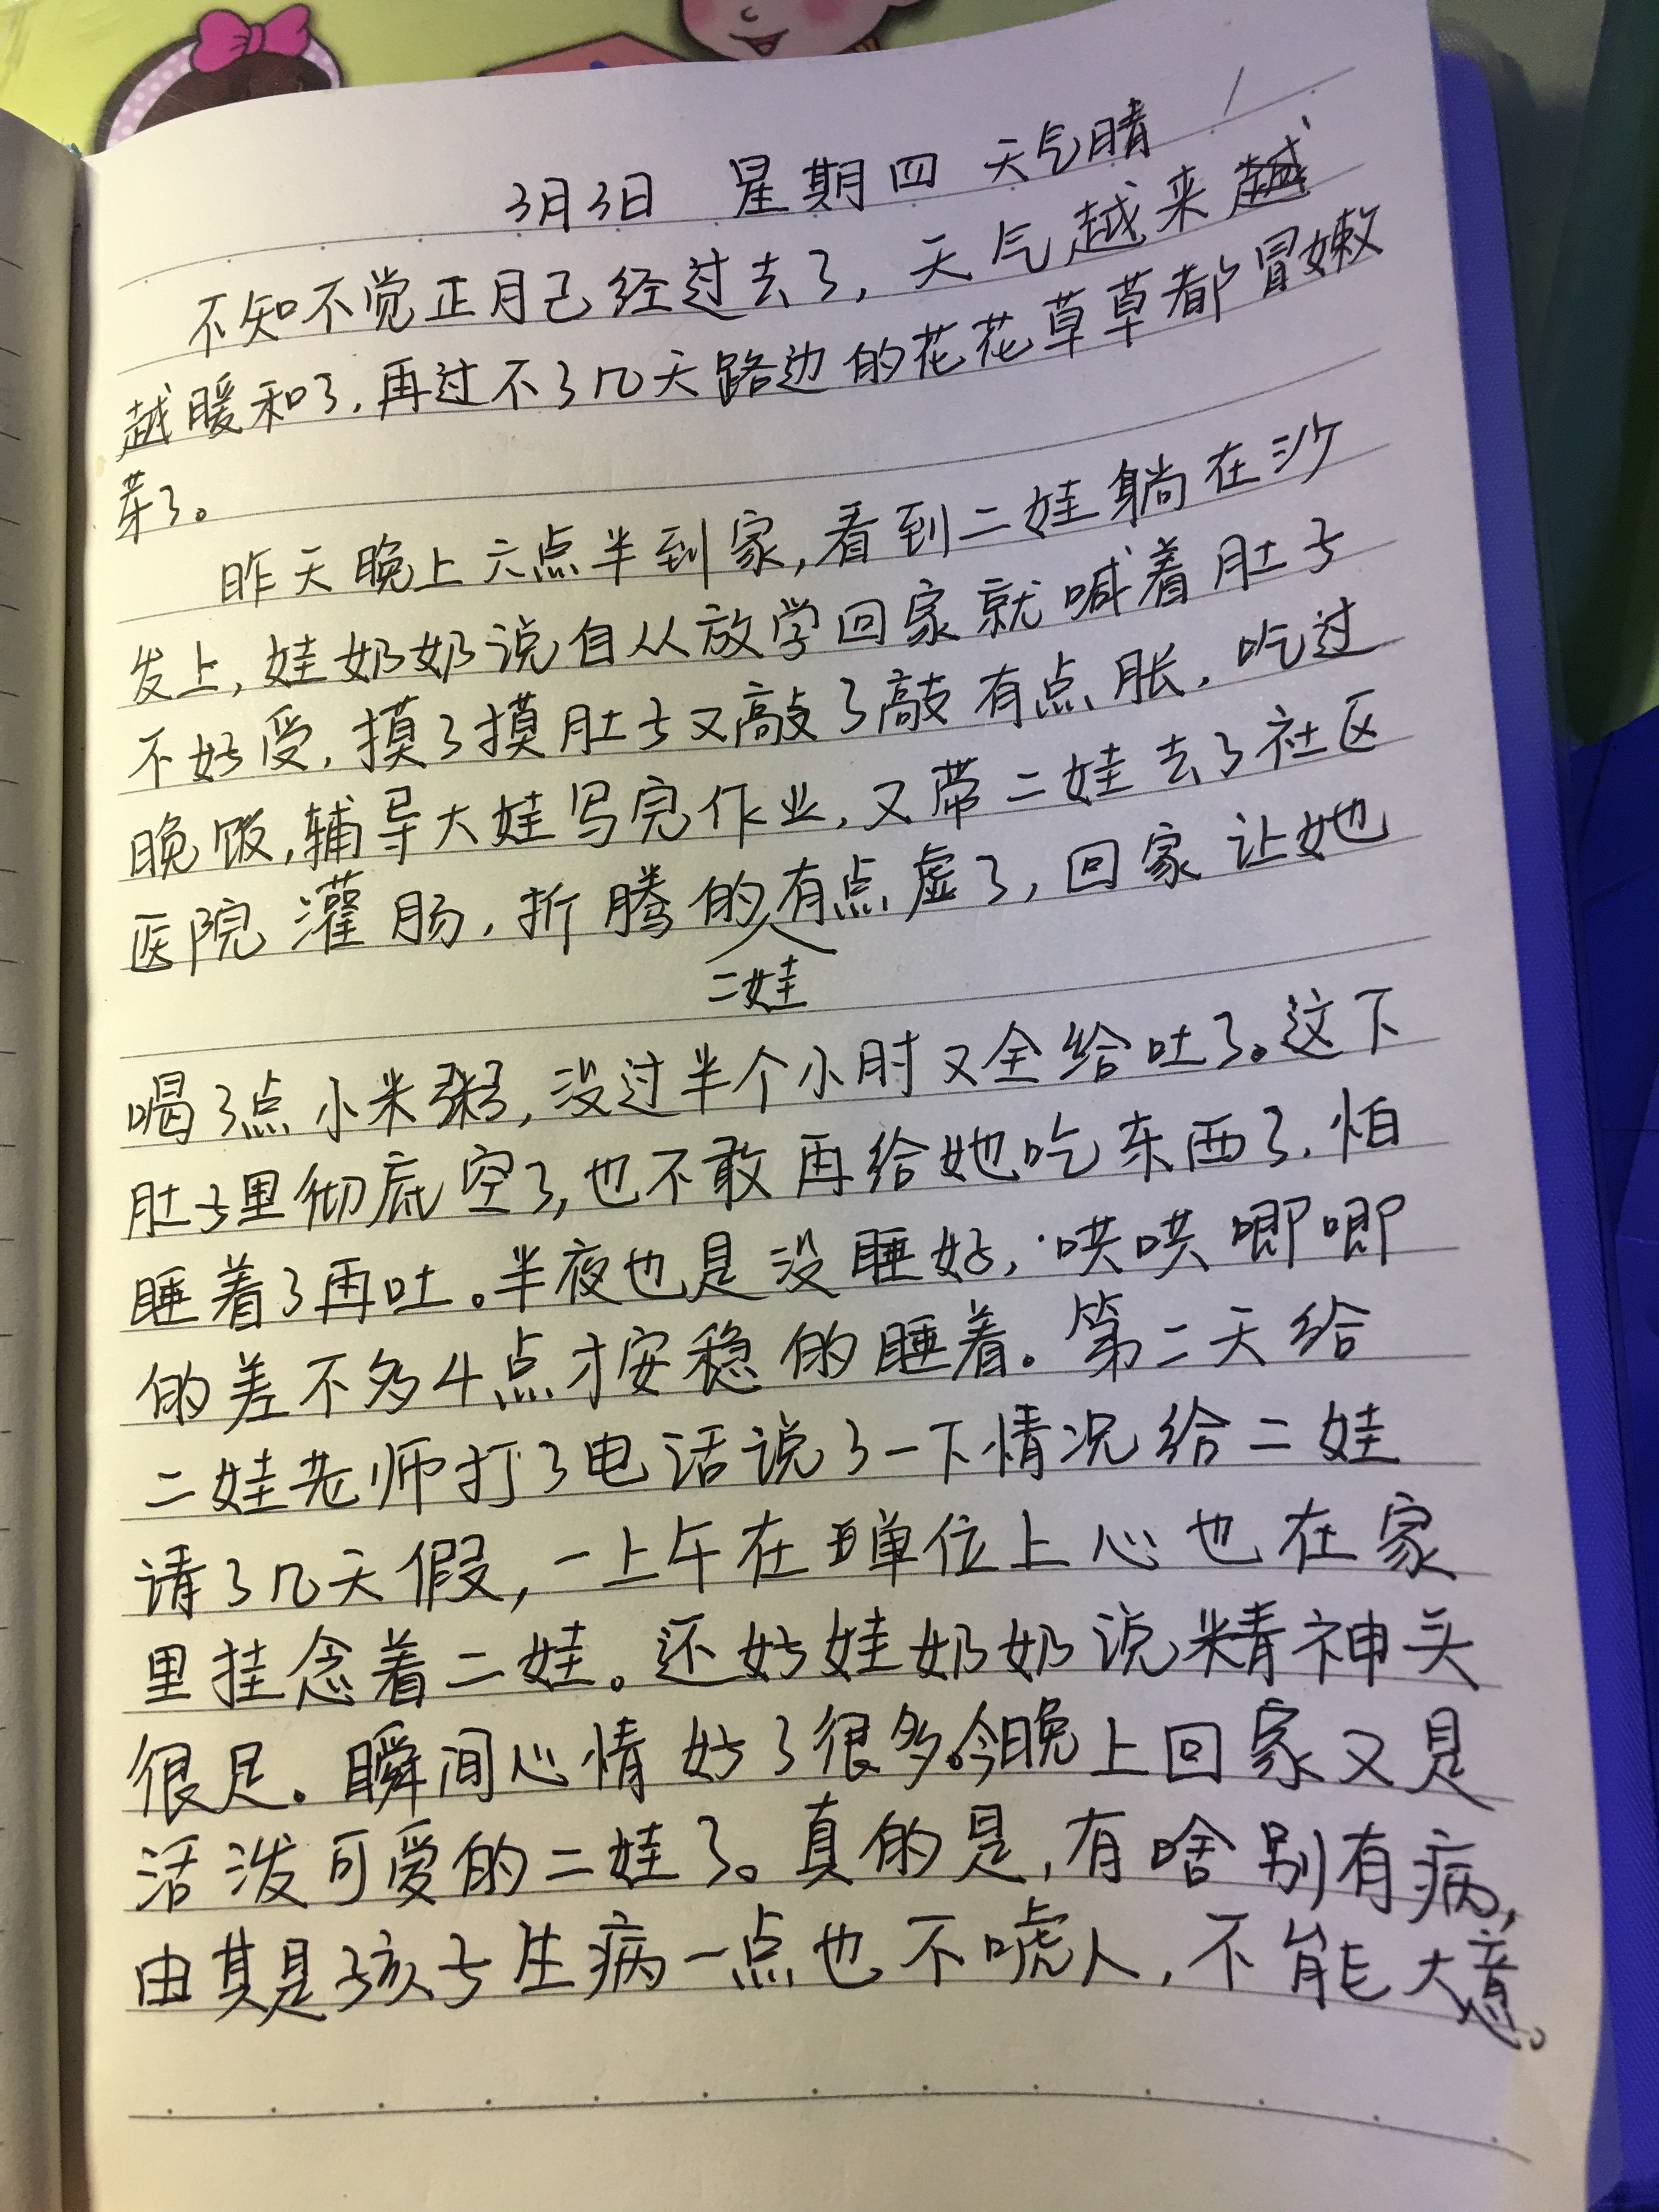 3月3日 星期四 天气晴
不知不觉正月已经过去了,天气越来越
越暖和了,再过不了几天路边的花花草草都冒嫩
芽了。
昨天晚上六点半到家,看到二娃躺在沙
发上,娃奶奶说自从放学回家就喊着肚子
不好受,摸了摸肚子又敲了敲有点胀.吃过
晚饭,辅导大娃写完作业,又带二娃去了社区
医院灌肠,折腾的有点虚了,回家让她
二娃
喝了点小米粥,没过半个小时又全给吐了。这下
肚子里彻底空了,也不敢再给她吃东西了.怕
睡着了再吐。半夜也是没睡好,哄哄唧唧
的差不多4点才安稳的睡着。第二天给
二娃老师打了电话说了一下情况给二娃
请了几天假,一上午在单位上心也在家
里挂念着二娃。还好娃奶奶说精神头
很足。瞬间心情好了很多。今晚上回家又是
活泼可爱的二娃了。真的是,有啥别有病,
由其是孩子生病一点也不唬人,不能大意。